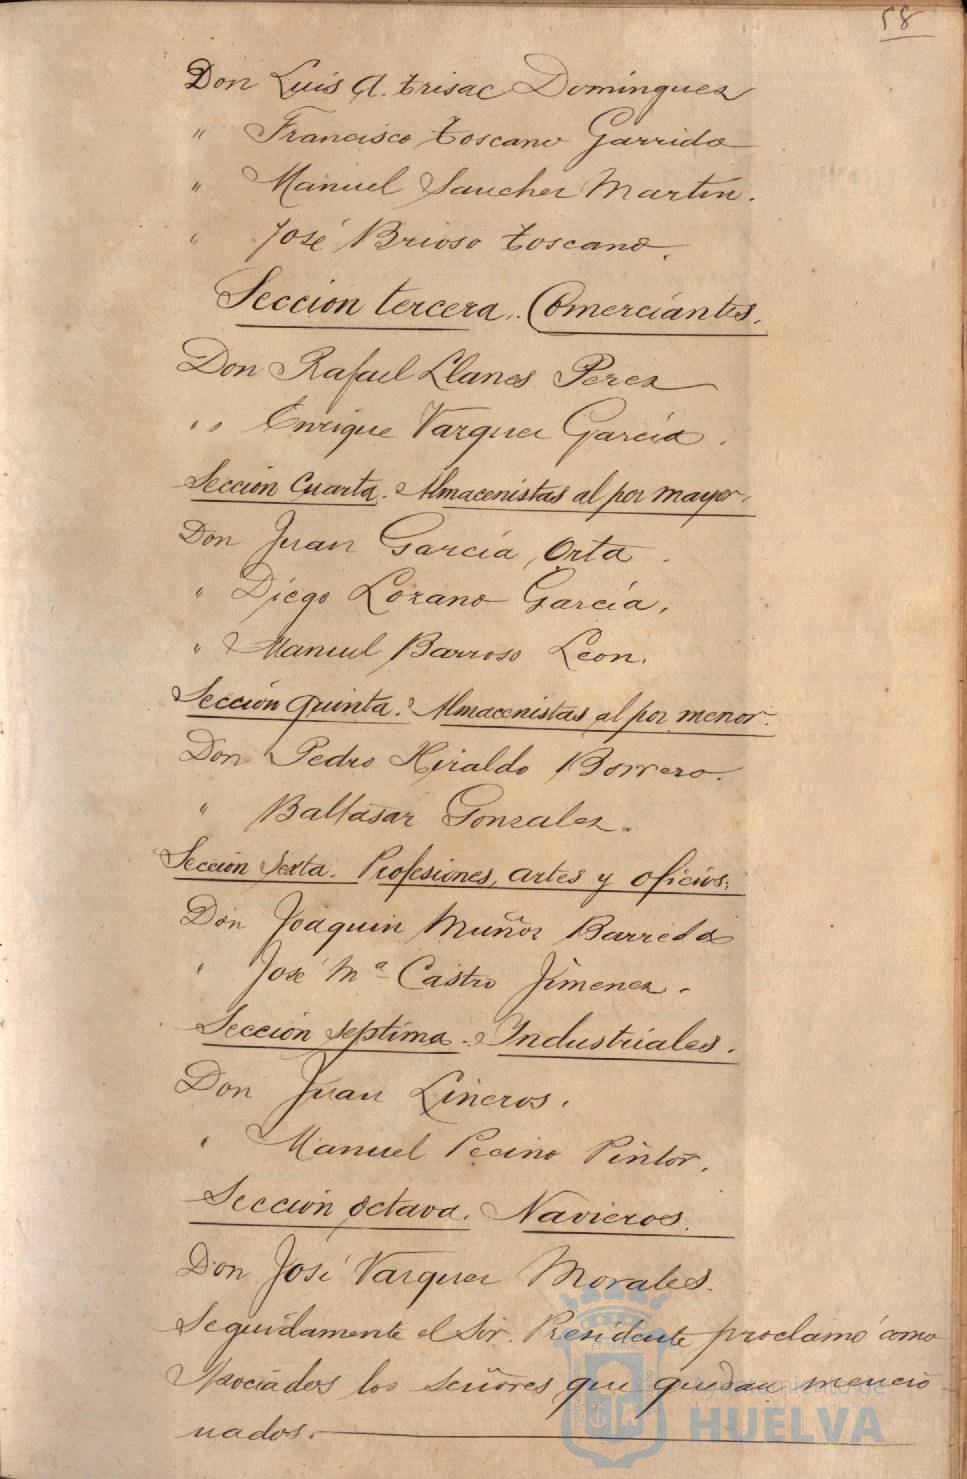 58
Don Luis A. trisac Dominguez
" Francisco toscano Garrido
" Manuel Sanchez Martin.
" José Brioso toscano.
Seccion tercera. Comerciantes.
Don Rafael Llanes Perez
" Enrique Vazquez García.
Seccion Cuarta. Almacenistas al por mayor.
Don Juan García Orta.
" Diego Lozano García.
" Manuel Barroso Leon.
Sección quinta. Almacenistas al por menor.
Don Pedro Hiraldo Borrero.
" Baltasar Gonzalez.
Sección Sexta. Profesiones, artes y oficios.
Don Joaquin Muñoz Barreda
" José Mª Castro Jimenez.
Sección septima. Industriales.
Don Juan Lineros.
" Manuel Pecino Pintor.
Sección octava. Navieros.
Don José Vazquez Morales.
Seguidamente el Sor. Presidente proclamó como
Asociados los señores que quedan mencio
nados.
Ayuntamiento de
HUELVA